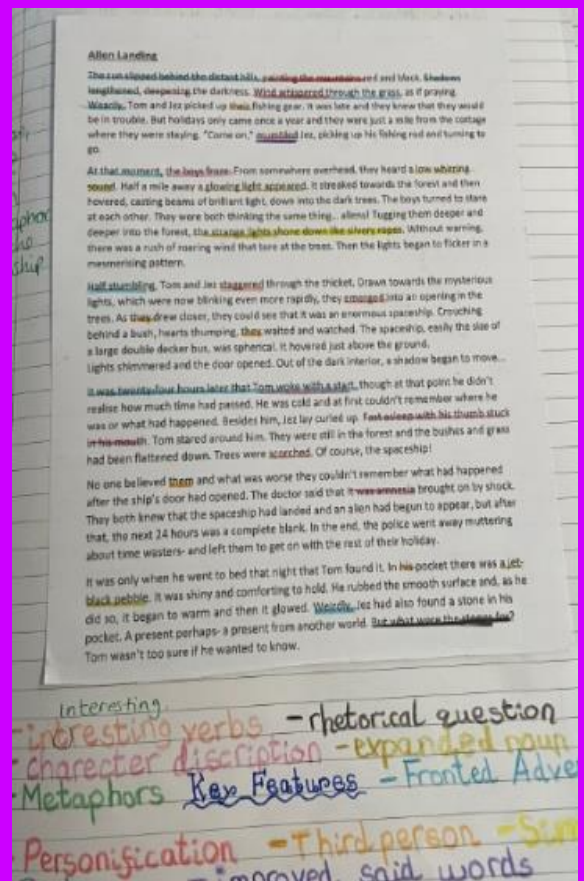 Alien Landing
The sun slipped behind the distant hills, painting the mountains red and black. Shadows
lengthened, deepening the darkness. Wind whispered through the grass, as if praying.
Wearily, Tom and Jez picked up their fishing gear. It was late and they knew that they would
be in trouble. But holidays only came once a year and they were just a mile from the cottage
where they were staying. "Come on," mumbled Jez, picking up his fishing rod and turning to
go.
At that moment, the boys froze. From somewhere overhead, they heard a low whirring
sound. Half a mile away a glowing light appeared. It streaked towards the forest and then
hovered, casting beams of brilliant light, down into the dark trees. The boys turned to stare
at each other. They were both thinking the same thing... aliens! Tugging them deeper and
deeper into the forest, the strange lights shone down like silvery ropes. Without warning,
there was a rush of roaring wind that tore at the trees. Then the lights began to flicker in a
mesmerising pattern.
Half stumbling, Tom and Jez staggered through the thicket. Drawn towards the mysterious
lights, which were now blinking even more rapidly, they emerged into an opening in the
trees. As they drew closer, they could see that it was an enormous spaceship. Crouching
behind a bush, hearts thumping, they waited and watched. The spaceship, easily the size of
a large double decker bus, was spherical. It hovered just above the ground.
Lights shimmered and the door opened. Out of the dark interior, a shadow began to move...
It was twenty-four hours later that Tom woke with a start, though at that point he didn't
realise how much time had passed. He was cold and at first couldn't remember where he
was or what had happened. Besides him, Jez lay curled up. Fast asleep with his thumb stuck
in his mouth. Tom stared around him. They were still in the forest and the bushes and grass
had been flattened down. Trees were scorched. Of course, the spaceship!
No one believed them and what was worse they couldn't remember what had happened
after the ship's door had opened. The doctor said that it was amnesia brought on by shock.
They both knew that the spaceship had landed and an alien had begun to appear, but after
that, the next 24 hours was a complete blank. In the end, the police went away muttering
about time wasters- and left them to get on with the rest of their holiday.
It was only when he went to bed that night that Tom found it. In his pocket there was a jet-
black pebble. It was shiny and comforting to hold. He rubbed the smooth surface and, as he
did so, it began to warm and then it glowed. Weirdly, Jez had also found a stone in his
pocket. A present perhaps- a present from another world. But what were the stones for?
Tom wasn't too sure if he wanted to know.
Interesting
-intresting verbs -rhetorical question
-charecter discription -expanded noun
-Metaphors Key Features -Fronted Adve
-Personification -Third person -Sim
improved said words